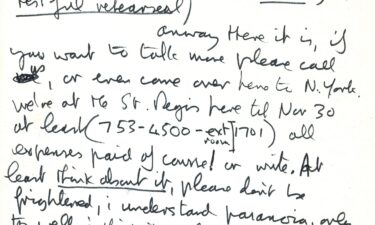 restful rehearsal)
anyway Here it is, if
you want to talk more please call
us, or even come over here to N. York.
we're at the St. Regis here til Nov 30
at least (753-4500-ext 1701) all
room
expenses paid of course! or write. At
least think about it, please don't be
frightened, i understand paranoia, only